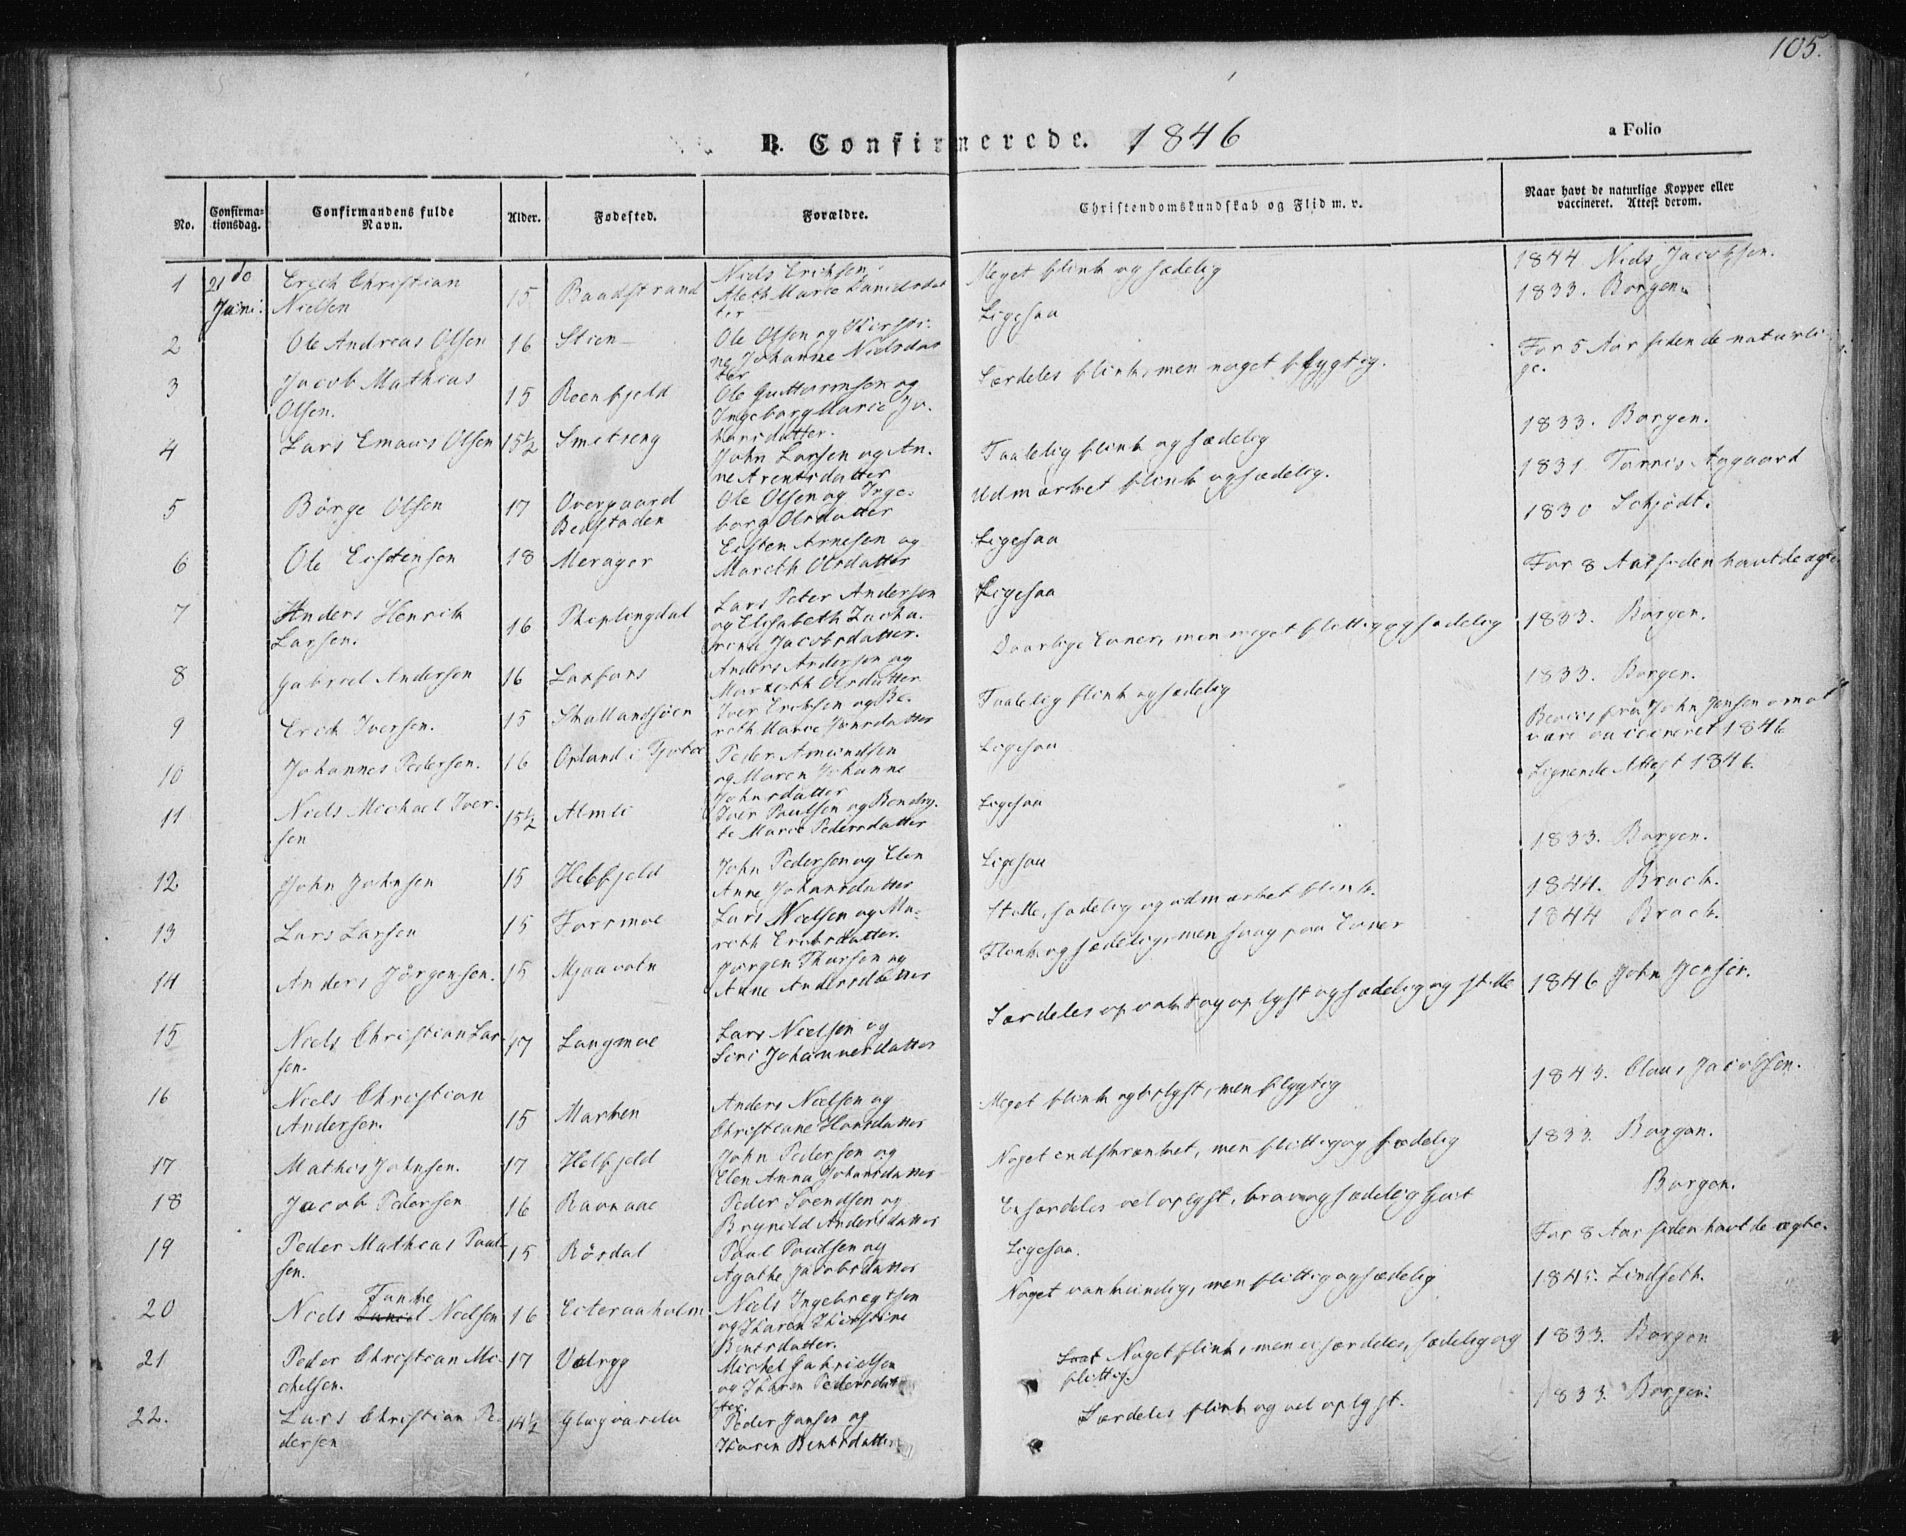 105.
B. Confirmerede. 1846
a Folio
No.
Confirma-
tionsdag.
Confirmandens fulde
Navn.
Alder.
Fødested.
Forældre.
Christendomskundskab og Flid m. v.
Naar havt de naturlige Kopper eller
vaccineret. Attest derom.
1
21de
Juni.
Erich Christian
Nielsen
15
Baadstrand
Niels Erichsen
Aleth Marie Danielsdat
ter
Meget flink og sædelig
1844 Niels Jacobsen.
2
Ole Andreas Olsen
16
Stien
Ole Olsen og Kirsti-
ne Johanne Nielsdat
ter
Ligesaa
1833. Borgen.
3
Jacob Mathias
Olsen.
15
Reenfjeld
Ole Guttormsen og
Ingeborg Marie Jo-
hansdatter.
Særdeles flink, men noget flygtig.
For 5 Aar siden de naturli
ge.
4
Lars Emaus Olsen
15½
Smetseng
John Larsen og An-
ne Arentsdatter
Taalelig flink og sædelig
1833. Borgen.
5
Børge Olsen
17
Overgaard
Beastaden
Ole Olsen og Inge-
borg Olsdatter
Udmærket flink og sædelig.
1831 Tønnis Aagaard
6
Ole Eistensen
18
Merager
Eisten Arnesen og
Mareth Olsdatter
Ligesaa
1830 Schjødt.
7
Anders Henrik
Larsen.
16
Lars Peter Andersen
og Elisabeth Zacha-
rina Jacobsdatter.
Ligesaa
For 8 Aar siden havt de ægte
8
Gabriel Andersen
16
Laxfors
Anders Andersen og
Mareth Olsdatter
Daarlige Evner, men meget flittig og sædelig
1833. Borgen.
9
Erich Iversen.
15
Iver Erichsen og Be-
reth Marie Jonsdatter
Taalelig flink og sædelig
1833. Borgen.
10
Johannes Pedersen.
16
Peder Amundsen
og Maren Johanne
Johnsdatter
Ligesaa
Beviis fra John Jensen om at
være vaccineret 1846
11
Niels Michael Iver-
sen
15½
Almli
Iver Paulsen og Bendig-
te Marie Pedersdatter
Ligesaa
Lignende Attest 1846.
12
John Johnsen
15
Helfjeld
John Pedersen og Elen
Anne Johansdatter
Ligesaa
1833. Borgen.
13
Lars Larsen
15
Forsmoe
Lars Nielsen og Ma-
reth Erichsdatter.
Stille, sædelig og udmærket flink.
1844. Brock.
14
Anders Jørgensen.
15
Mjaavatn
Jørgen Thorsen og
Anne Andersdatter
Flink og sædelig, men svag paa Evner
1844 Brock.
15
Niels Christian Lar-
sen.
17
Langmoe
Lars Nielsen og
Siri Johannesdatter
Særdeles opvakt og oplyst og sædelig og stille
1846 John Jensen.
16
Niels Christian
Andersen.
15
Marken
Anders Nielsen og
Christiane Hansdatter
Meget flink og oplyst, men flygtig
1843. Claus Jacobsen.
17
Mathis Johnsen.
17
Helfjeld
John Pedersen og
Elen Anna Johansdatter
Noget indskrænket, men flittig og sædelig
1833. Borgen.
18
Jacob Pedersen
16
Ravnaae
Peder Svendsen og
Brynild Andersdatter
En særdeles vel oplyst, brav og sædelig Gut
Borgen.
19
Peder Mathias Paul-
sen.
15
Røsdal
Paul Paulsen og
Agathe Jacobsdatter
Ligesaa.
For 8 Aar siden havt de ægte.
20
Fanche
Niels Daniel Nielsen
16
Eiteraaholm
Niels Ingebregtsen
og Karen Kirstine
Bentsdatter.
Noget vankundig, men flittig og sædelig
1845. Lindseth.
21
Peder Christian Mi-
chelsen.
17
Valryg
Michel Gabrielsen
og Karen Pedersdat
ter.
Noget flink, men ei særdeles, sædelig og
flittig.
1833. Borgen
22.
Lars Christian Pe-
dersen
14½
Peder Jansen og
Karen Bentsdatter
Særdeles flink og vel oplyst.
1833. Borgen.